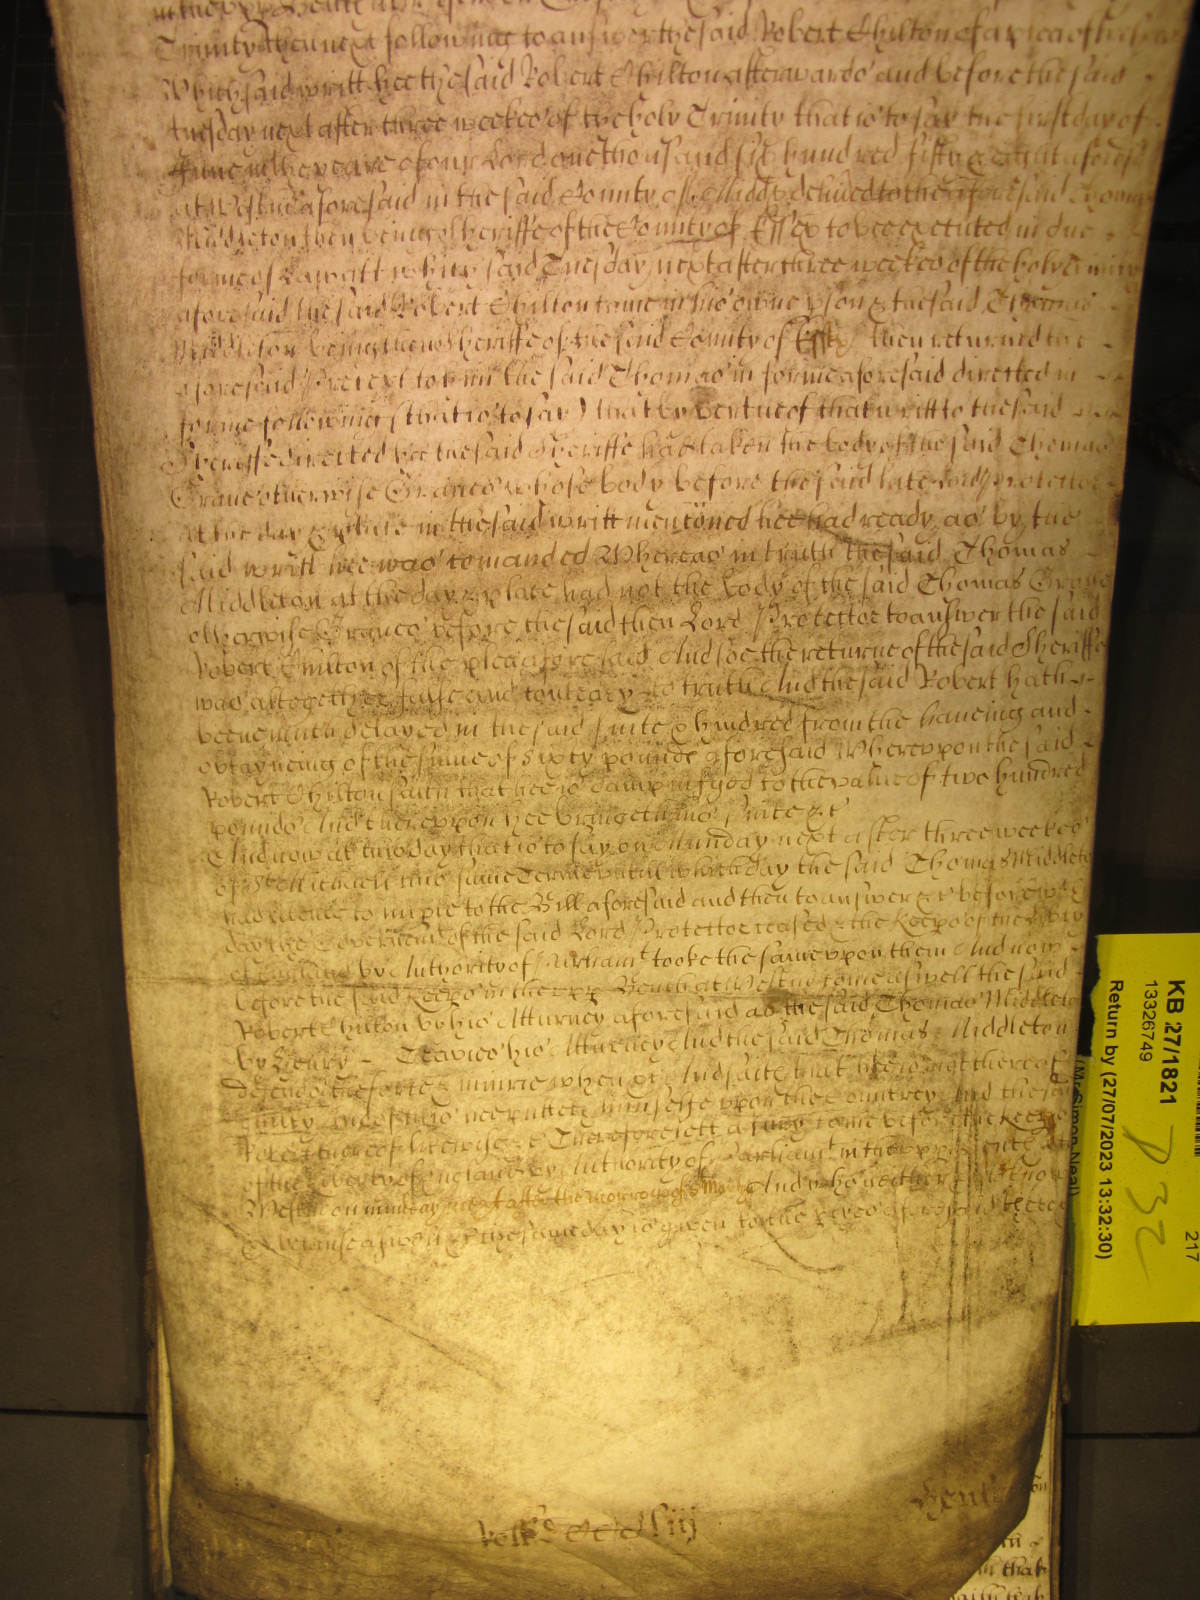 in the upp Bench
Trinity then next following to answer the said Robert Chilton of a plea of
Which said writt hee the said Robert Chilton afterwards and before the said
tuesday next after three weekes of the holy Trinity that is to say the first day of
June in the yeare of our Lord one thousand six hundred fifty & eight aforesd
at Westmr aforesaid in the said County of Midds delived to the aforesaid Thomas
Middleton then being Sheriffe of the County of Essex to bee executed in due
forme of Law att which said Tuesday next after three weekes of the holy Trinity
aforesaid the said Robert Chilton came in his owne pson & the said Thomas
Middleton being then Sheriffe of the said County of Essex then returned the
aforesaid Precept to him the said Thomas in forme aforesaid directed in
forme following (that is to say) that by vertue of that writt to the said
Sheriffe directed hee the said Sheriffe had taken the body of the said Thomas
Grave otherwise Graves whose body before the said late Lord Protector
at the day & place in the said writt mentioned hee had ready as by the
said writt hee was comanded Whereas in truth the said Thomas
Middleton at the day & place had not the body of the said Thomas Grave
otherwise Graves before the said then Lord Protector to answer the said
Robert Chilton of the plea aforesaid And soe the returne of the said Sheriffe
was altogether false and contrary to truth And the said Robert hath
beene much delayed in the said suite & hindred from the haveing and
obtayneing of the sume of sixty pounds aforesaid Whereupon the said
Robert Chilton saith that hee is dampnifyed to the value of two hundred
pounds And thereupon hee bringeth his suite &c
And now at this day that is to say on Munday next after three weekes
of St Michaell this same Terme untill which day the said Thomas Middleton
had licence to imple to the Bill aforesaid and then to answer &c before wch
day the Governmt of the said Lord Protector ceased & the Keeps of the Libty
of England by Authority of Parliamt tooke the same upon them And now
before the said Keeps in the upp Bench at Westmr come aswell the said
Robert Chilton by his Atturney aforesaid as the said Thomas Middleton
by Henry Travies his Atturney And the said Thomas Middleton
defends the force & iniurie when &c And saith that hee is not thereof
guilty And of this hee putteth himselfe upon the Countrey And the said
Robert thereof likewise &c Therefore lett a Jury come before the Keeps
of the Liberty of England by Authority of Parliamt in the upp Bench att
Westmr on munday next after the morrow of And who neither &c to
&c because aswell &c the same day is given to the ptyes aforesaid there &c
KB 27/1821
13326749
Return by (27/07/2023 13:32:30)
(Mr Simon Neal)
217
D 32